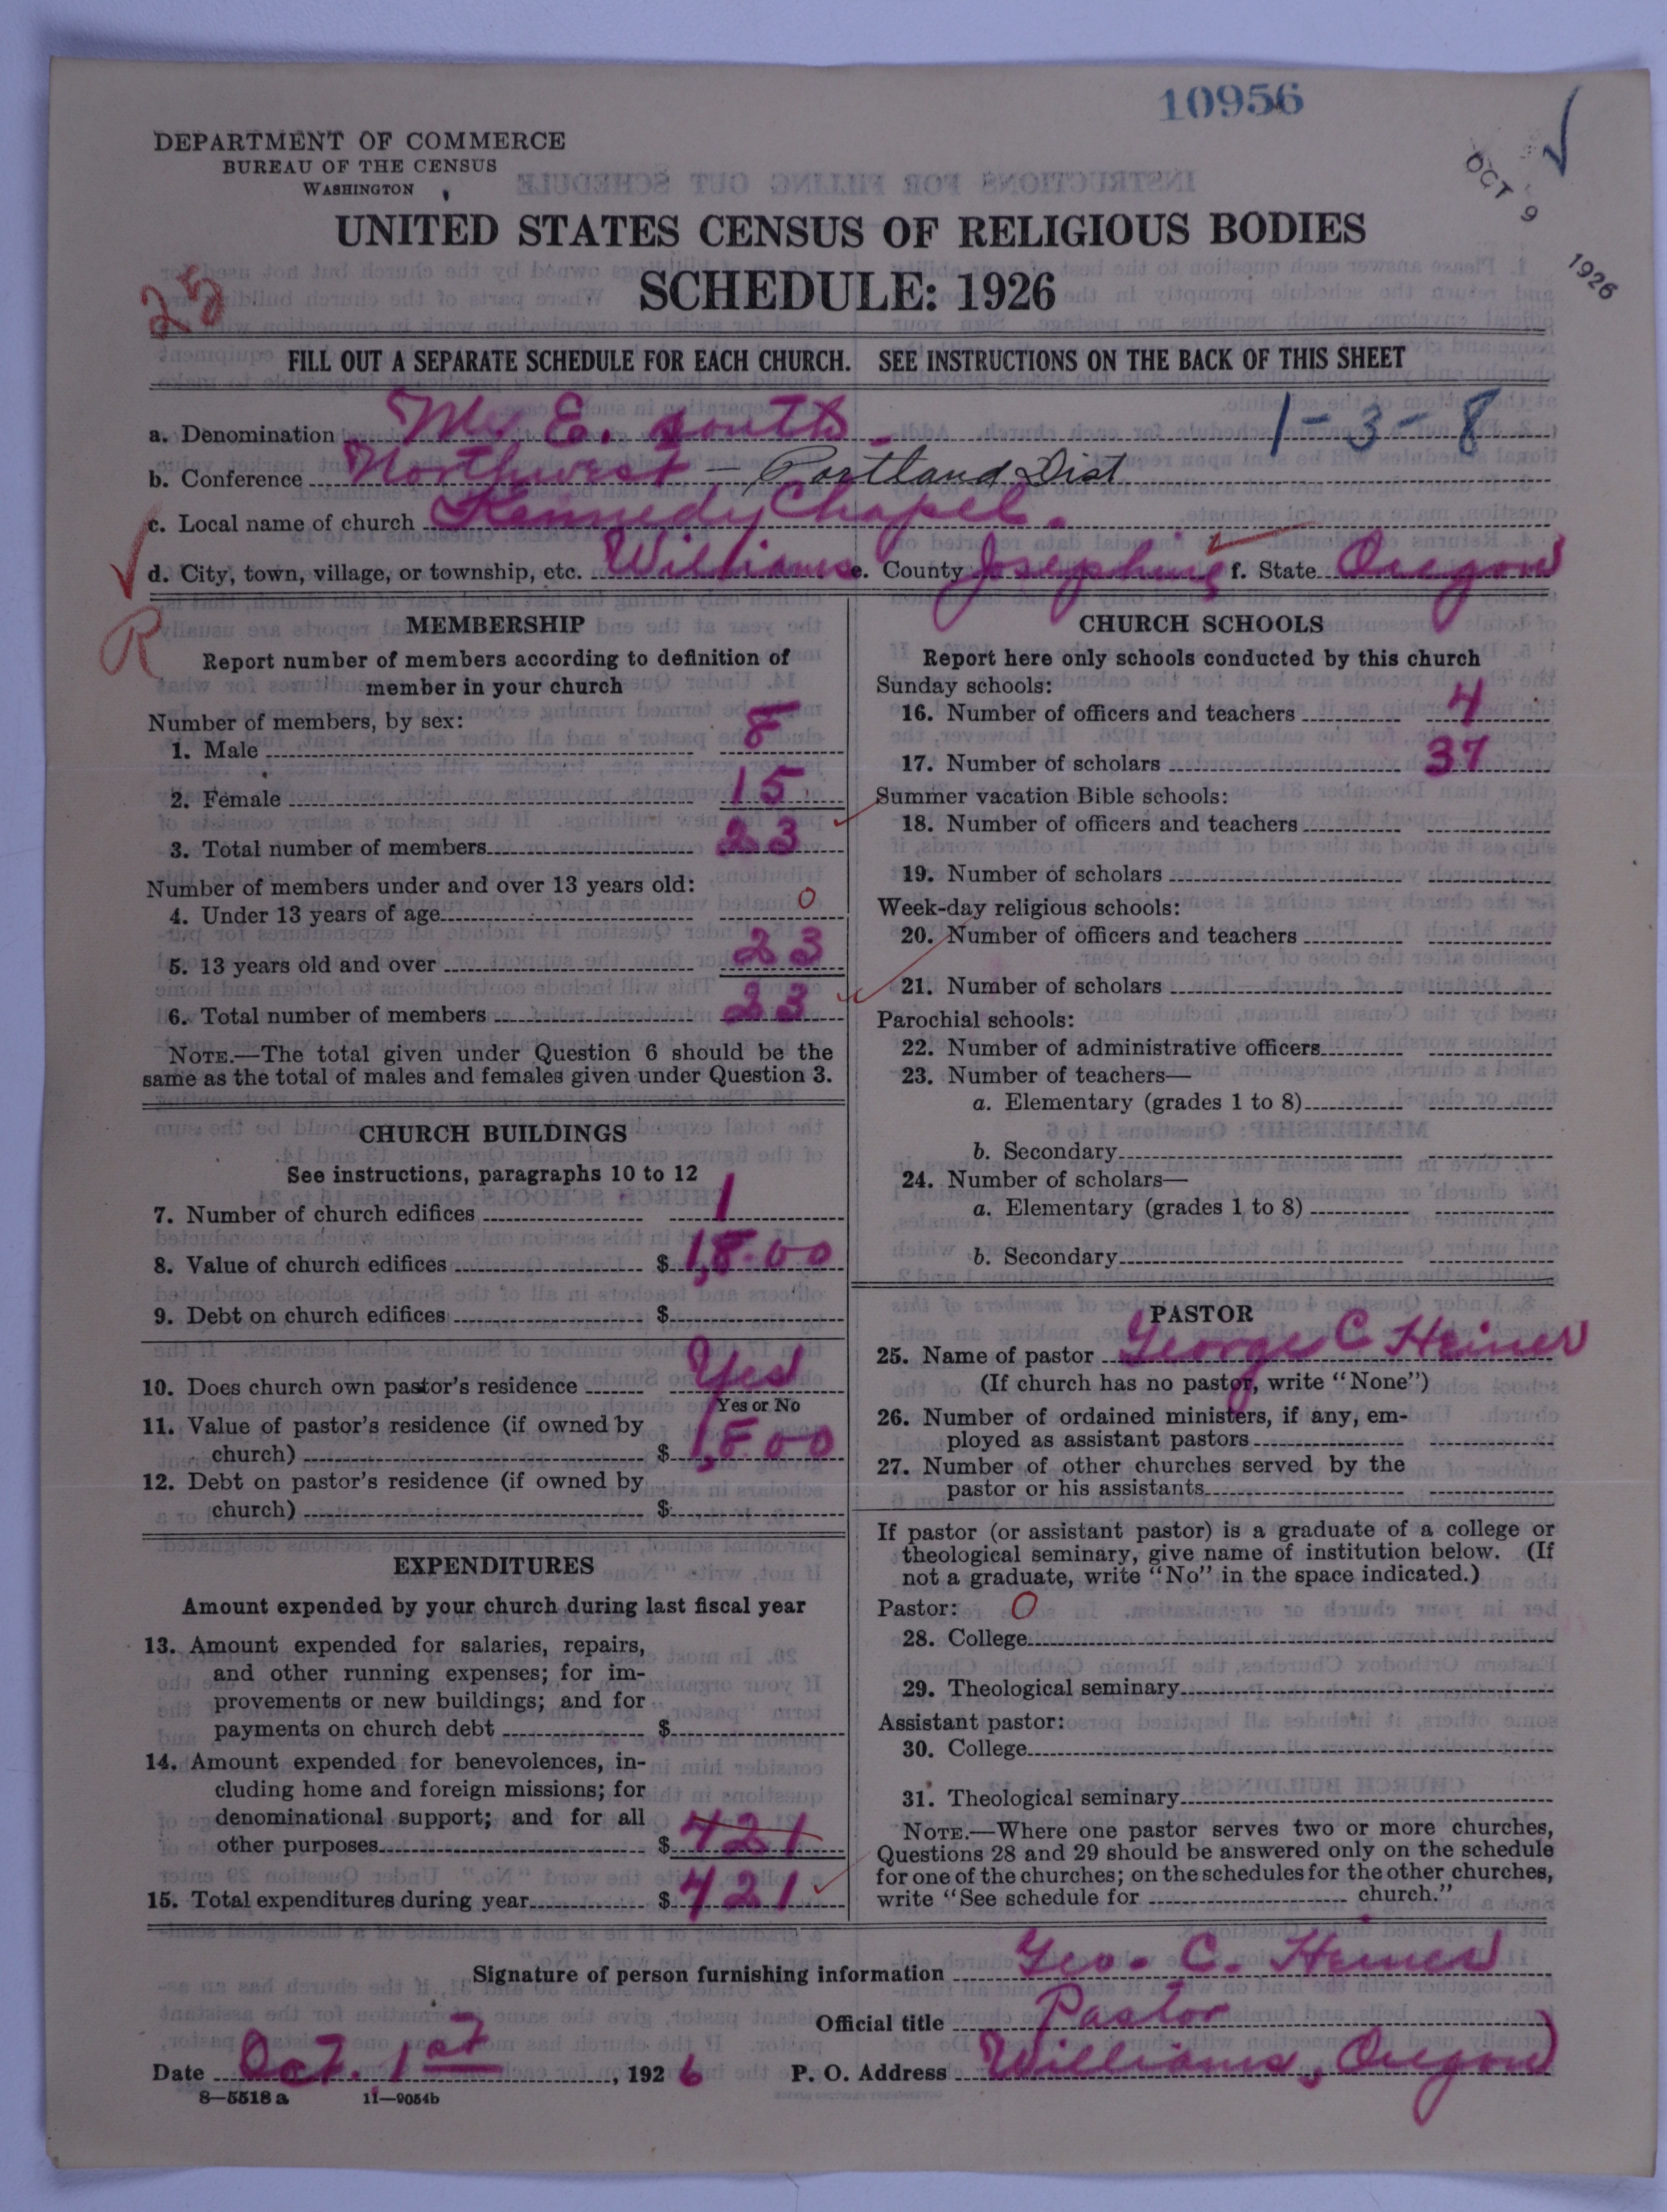 10956
DEPARTMENT OF COMMERCE
BUREAU OF THE CENSUS
WASHINGTON
OCT 9 1926
UNITED STATES CENSUS OF RELIGIOUS BODIES
SCHEDULE: 1926
25
FILL OUT A SEPARATE SCHEDULE FOR EACH CHURCH. SEE INSTRUCTIONS ON THE BACK OF THIS SHEET
a. Denomination M. E. South. 1-3-8
b. Conference Northwest — Portland Dist
c. Local name of church Kennedy Chapel.
d. City, town, village, or township, etc. Williams e. County Josephine f. State Oregon
R
MEMBERSHIP
Report number of members according to definition of
member in your church
Number of members, by sex:
1. Male 8
2. Female 15
3. Total number of members 23
Number of members under and over 13 years old:
4. Under 13 years of age 0
5. 13 years old and over 23
6. Total number of members 23
NOTE.—The total given under Question 6 should be the
same as the total of males and females given under Question 3.
CHURCH BUILDINGS
See instructions, paragraphs 10 to 12
7. Number of church edifices 1
8. Value of church edifices $ 1,800
9. Debt on church edifices $
10. Does church own pastor's residence Yes
Yes or No
11. Value of pastor's residence (if owned by
church) $ 1,800
12. Debt on pastor's residence (if owned by
church) $
EXPENDITURES
Amount expended by your church during last fiscal year
13. Amount expended for salaries, repairs,
and other running expenses; for im-
provements or new buildings; and for
payments on church debt $
14. Amount expended for benevolences, in-
cluding home and foreign missions; for
denominational support; and for all
other purposes $ 421
15. Total expenditures during year $ 421
CHURCH SCHOOLS
Report here only schools conducted by this church
Sunday schools:
16. Number of officers and teachers 4
17. Number of scholars 37
Summer vacation Bible schools:
18. Number of officers and teachers
19. Number of scholars
Week-day religious schools:
20. Number of officers and teachers
21. Number of scholars
Parochial schools:
22. Number of administrative officers
23. Number of teachers—
a. Elementary (grades 1 to 8)
b. Secondary
24. Number of scholars—
a. Elementary (grades 1 to 8)
b. Secondary
PASTOR
25. Name of pastor George C Heiner
(If church has no pastor, write "None")
26. Number of ordained ministers, if any, em-
ployed as assistant pastors
27. Number of other churches served by the
pastor or his assistants
If pastor (or assistant pastor) is a graduate of a college or
theological seminary, give name of institution below. (If
not a graduate, write "No" in the space indicated.)
Pastor: 0
28. College
29. Theological seminary
Assistant pastor:
30. College
31. Theological seminary
NOTE.—Where one pastor serves two or more churches,
Questions 28 and 29 should be answered only on the schedule
for one of the churches; on the schedules for the other churches,
write "See schedule for church."
Signature of person furnishing information Geo. C. Heiner
Official title Pastor
Date Oct. 1st, 1926 P. O. Address Williams, Oregon
8—5518 a 11—9054b